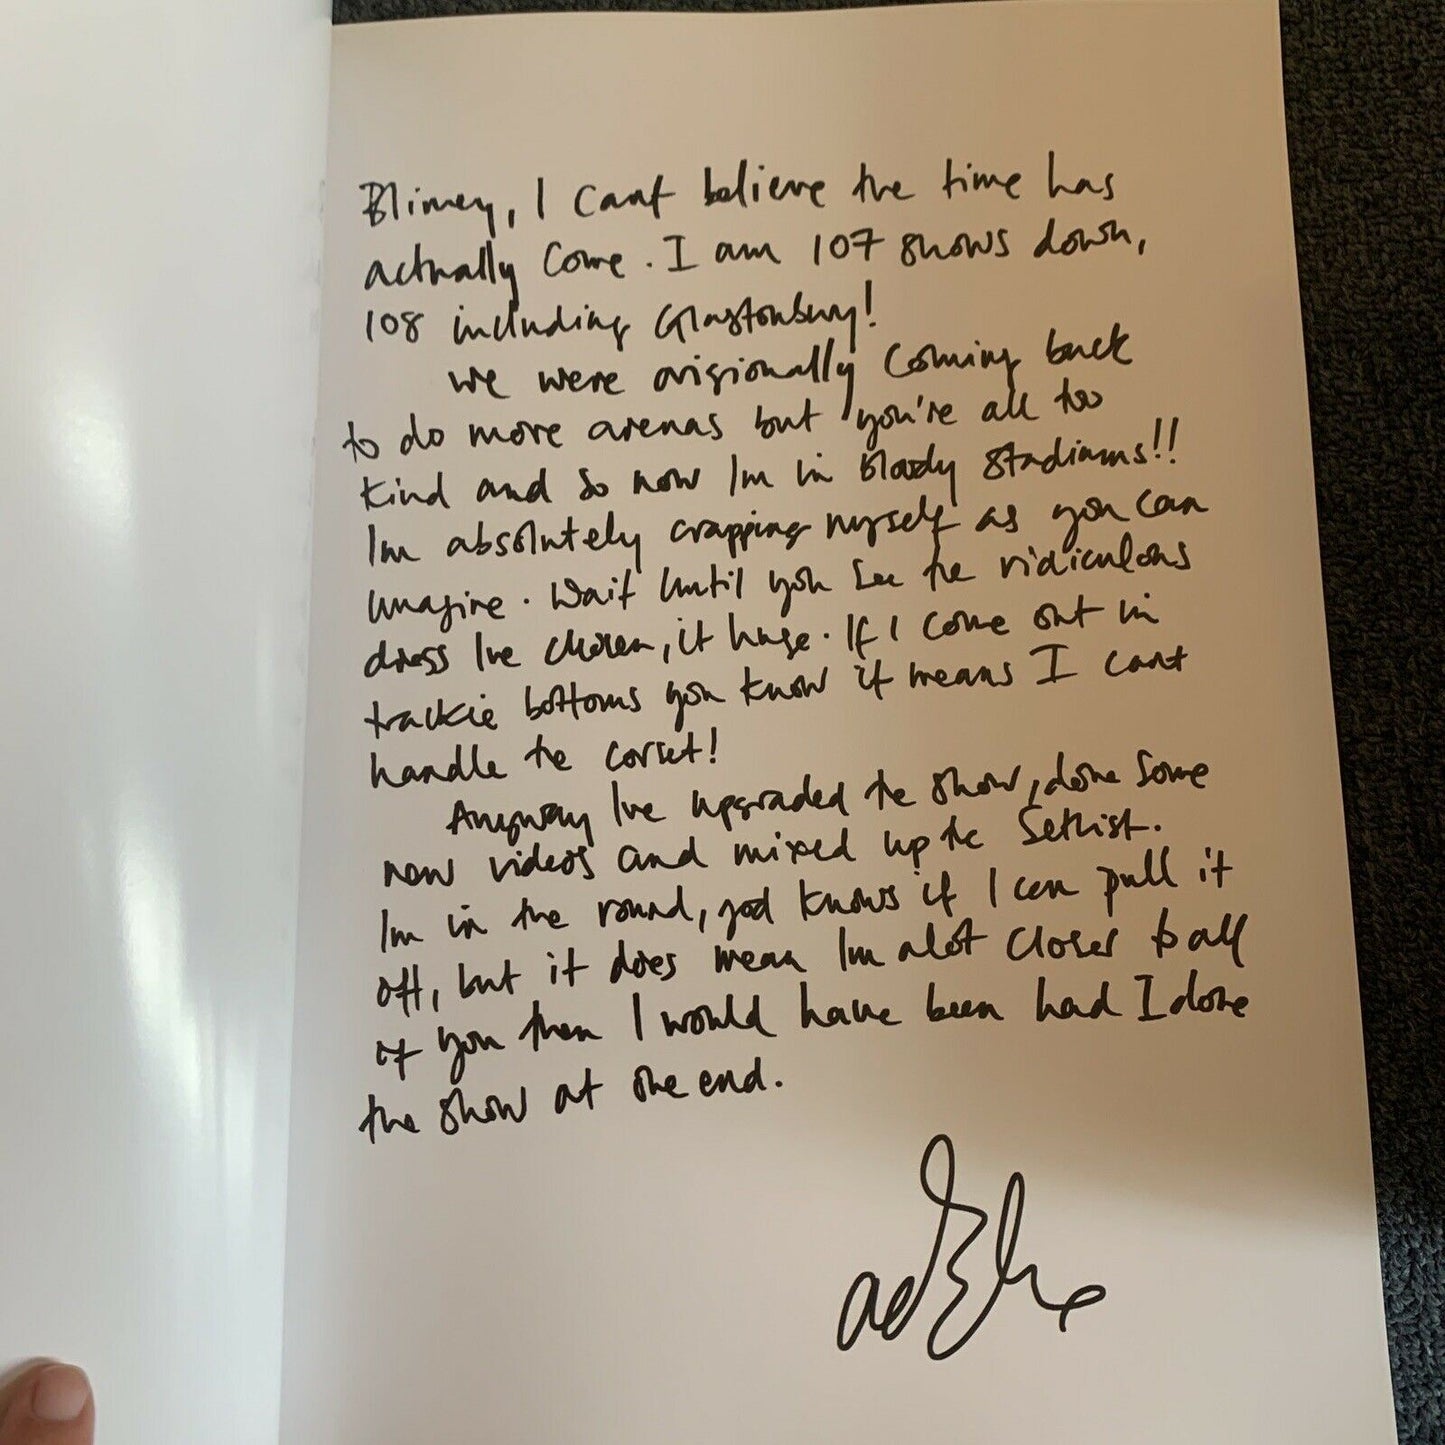 Blimey, I cant believe the time has
actually come. I am 107 shows down,
108 including Glastonbury!
we were origionally coming back
to do more arenas but you're all too
kind and so now Im in bloody stadiums!!
Im absolutely crapping myself as you can
imagine. Wait until you see the ridiculous
dress Ive chosen, it huge. If I come out in
trackie bottoms you know it means I cant
handle the corset!
Anyway Ive upgraded the show, done some
new videos and mixed up the Setlist.
Im in the round, god knows if I can pull it
off, but it does mean Im alot closer to all
of you then I would have been had I done
the show at one end.
adele